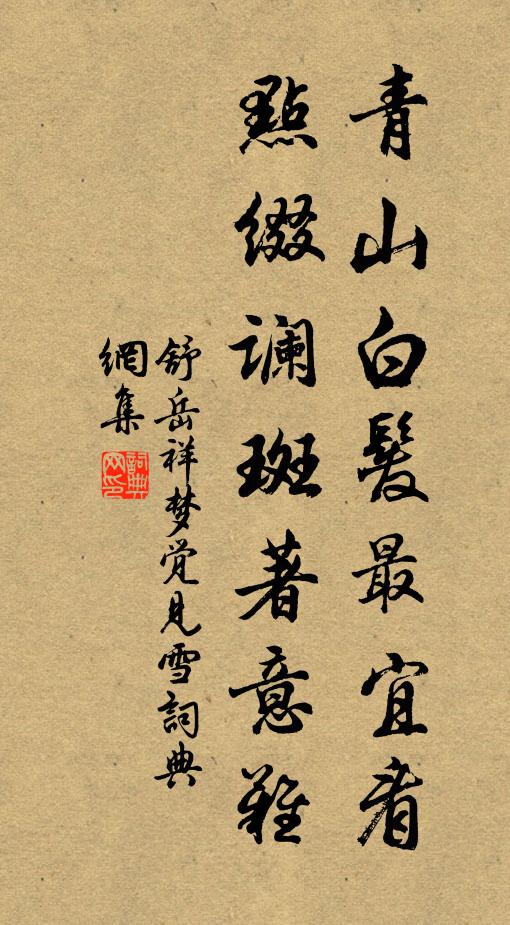 青山白髮最宜看
點綴讕斑著意難
舒岳祥梦觉見雪詞典
網集
詞典
网印